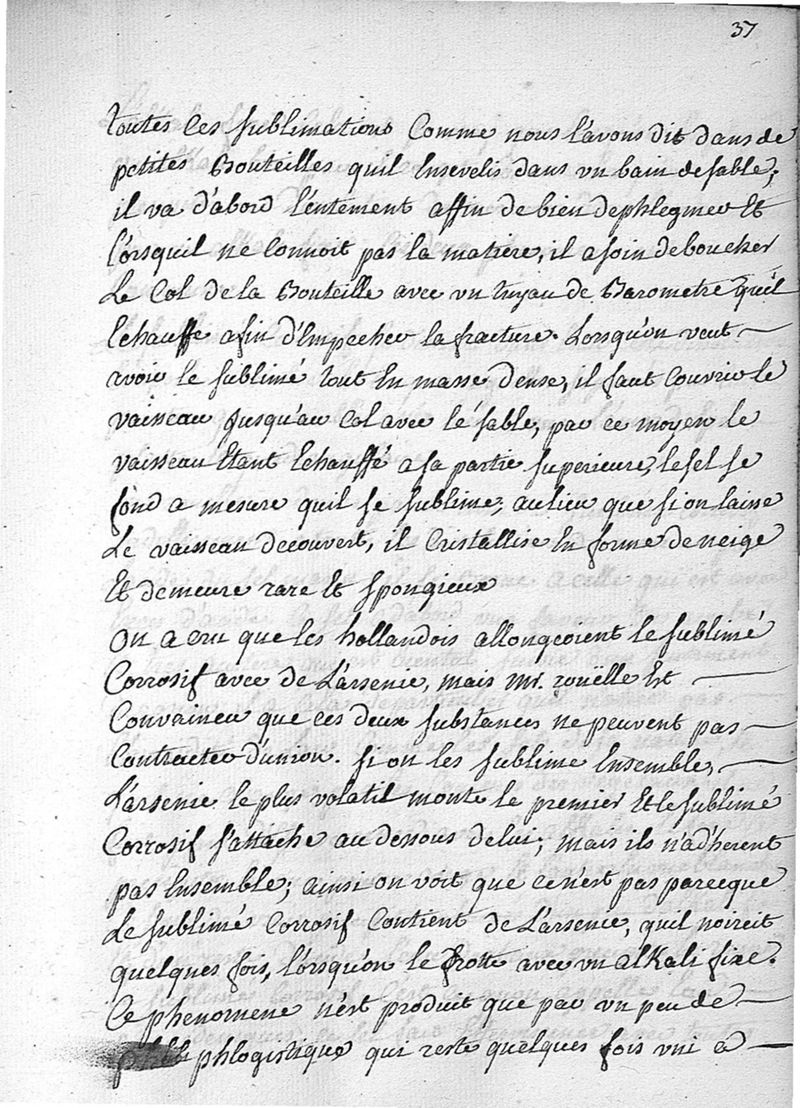 37
toutes ces sublimations comme nous l'avons dit dans de
petites Bouteilles quil ensevelis dans un bain de sable;
il va d'abord lentement affin de bien dephlegmer et
lorsquil ne connoit pas la matiere, il a soin de boucher
le Col de la Bouteille avec un tuyau de Barometre quil
Echauffe afin d'Empecher la fracture. Lorsqu'on veut
avoir le sublimé tout en masse dense, il faut couvrir le
vaisseau jusqu'au col avec le sable, par ce moyen le
vaisseau Etant Echauffé a sa partie superieure, le sel se
fond a mesure quil se sublime; au lieu que si on laisse
le vaisseau decouvert, il Cristallise en forme de neige
Et demeure rare Et spongieux
on a cru que les hollandois allongeoient le sublimé
Corrosif avec de L'arsenic, mais mr. rouëlle Est
Convaincu que ces deux substances ne peuvent pas
Contracter d'union. si on les sublime Ensemble,
L'arsenic le plus volatil monte le premier Et le sublimé
Corrosif s'attache au dessous de lui; mais ils n'adherent
pas Ensemble; ainsi on voit que ce n'est pas parceque
le sublimé Corrosif Contient de L'arsenic, quil noircit
quelques fois, lorsqu'on le frotte avec un alKali fixe.
Ce phenomene n'est produit que par un peu de
phlogistique qui reste quelques fois uni a